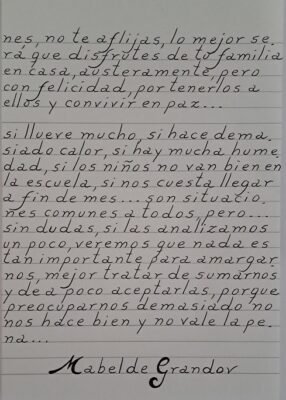 nes, no te aflijas, lo mejor se-
rá que disfrutes de tu familia
en casa, austeramente, pero
con felicidad, por tenerlos a
ellos y convivir en paz...
si llueve mucho, si hace dema-
siado calor, si hay mucha hume-
dad, si los niños no van bien en
la escuela, si nos cuesta llegar
a fin de mes... son situacio-
nes comunes a todos, pero...
sin dudas, si las analizamos
un poco, veremos que nada es
tan importante para amargar-
nos, mejor tratar de sumarnos
y de a poco aceptarlas, porque
preocuparnos demasiado no
nos hace bien y no vale la pe-
na...
Mabel de Grandov